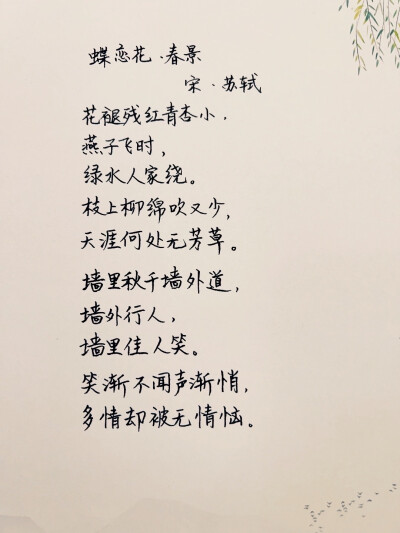 蝶恋花·春景
宋·苏轼
花褪残红青杏小，
燕子飞时，
绿水人家绕。
枝上柳绵吹又少，
天涯何处无芳草。
墙里秋千墙外道，
墙外行人，
墙里佳人笑。
笑渐不闻声渐悄，
多情却被无情恼。